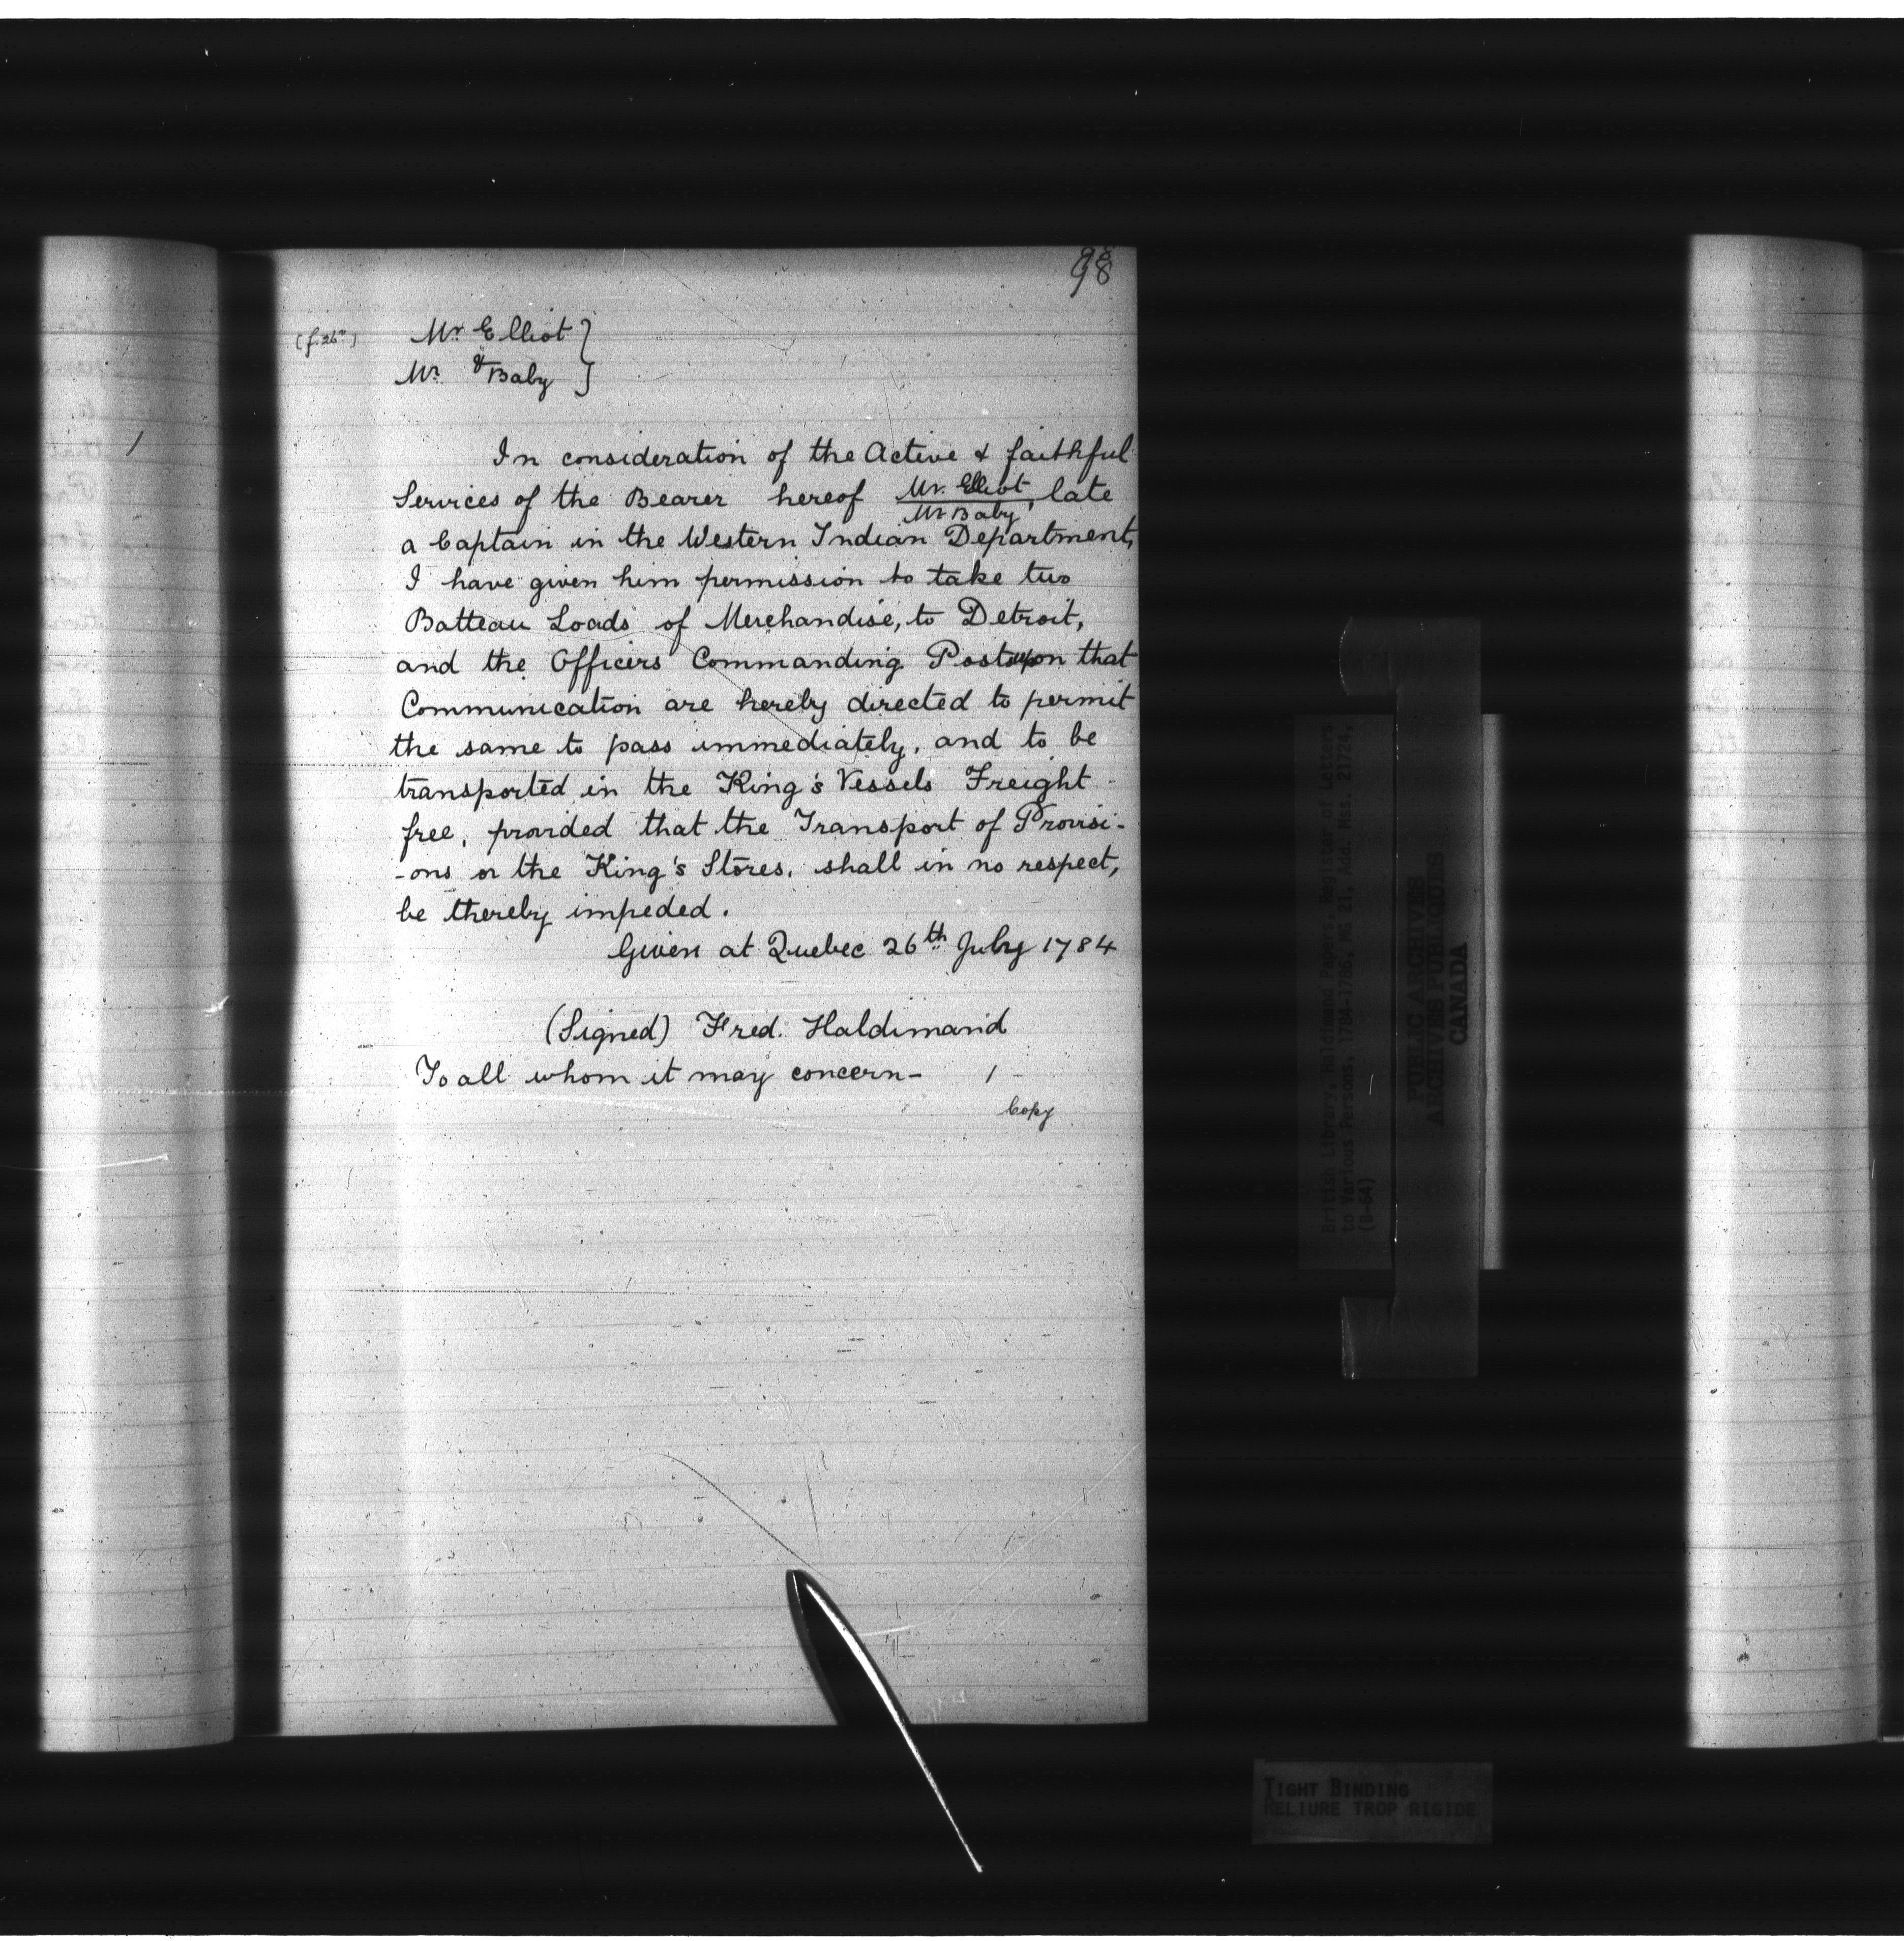 98
(f. 26)
Mr. Elliot }
&
Mr. Baby }
In consideration of the Active & faithful
Services of the Bearer hereof Mr. Elliot, late
Mr Baby
a Captain in the Western Indian Department,
I have given him permission to take two
Batteau Loads of Merchandise, to Detroit,
and the Officers Commanding Posts upon that
Communication are hereby directed to permit
the same to pass immediately, and to be
transported in the King's Vessels Freight
free, provided that the Transport of Provisi-
-ons or the King's Stores, shall in no respect,
be thereby impeded.
Given at Quebec 26th July 1784
(Signed) Fred. Haldimand
To all whom it may concern -
Copy
British Library, Haldimand Papers, Register of Letters
to Various Persons, 1784-1786, MG 21, Add. Mss. 21724,
(B-64)
PUBLIC ARCHIVES
ARCHIVES PUBLIQUES
CANADA
TIGHT BINDING
RELIURE TROP RIGIDE